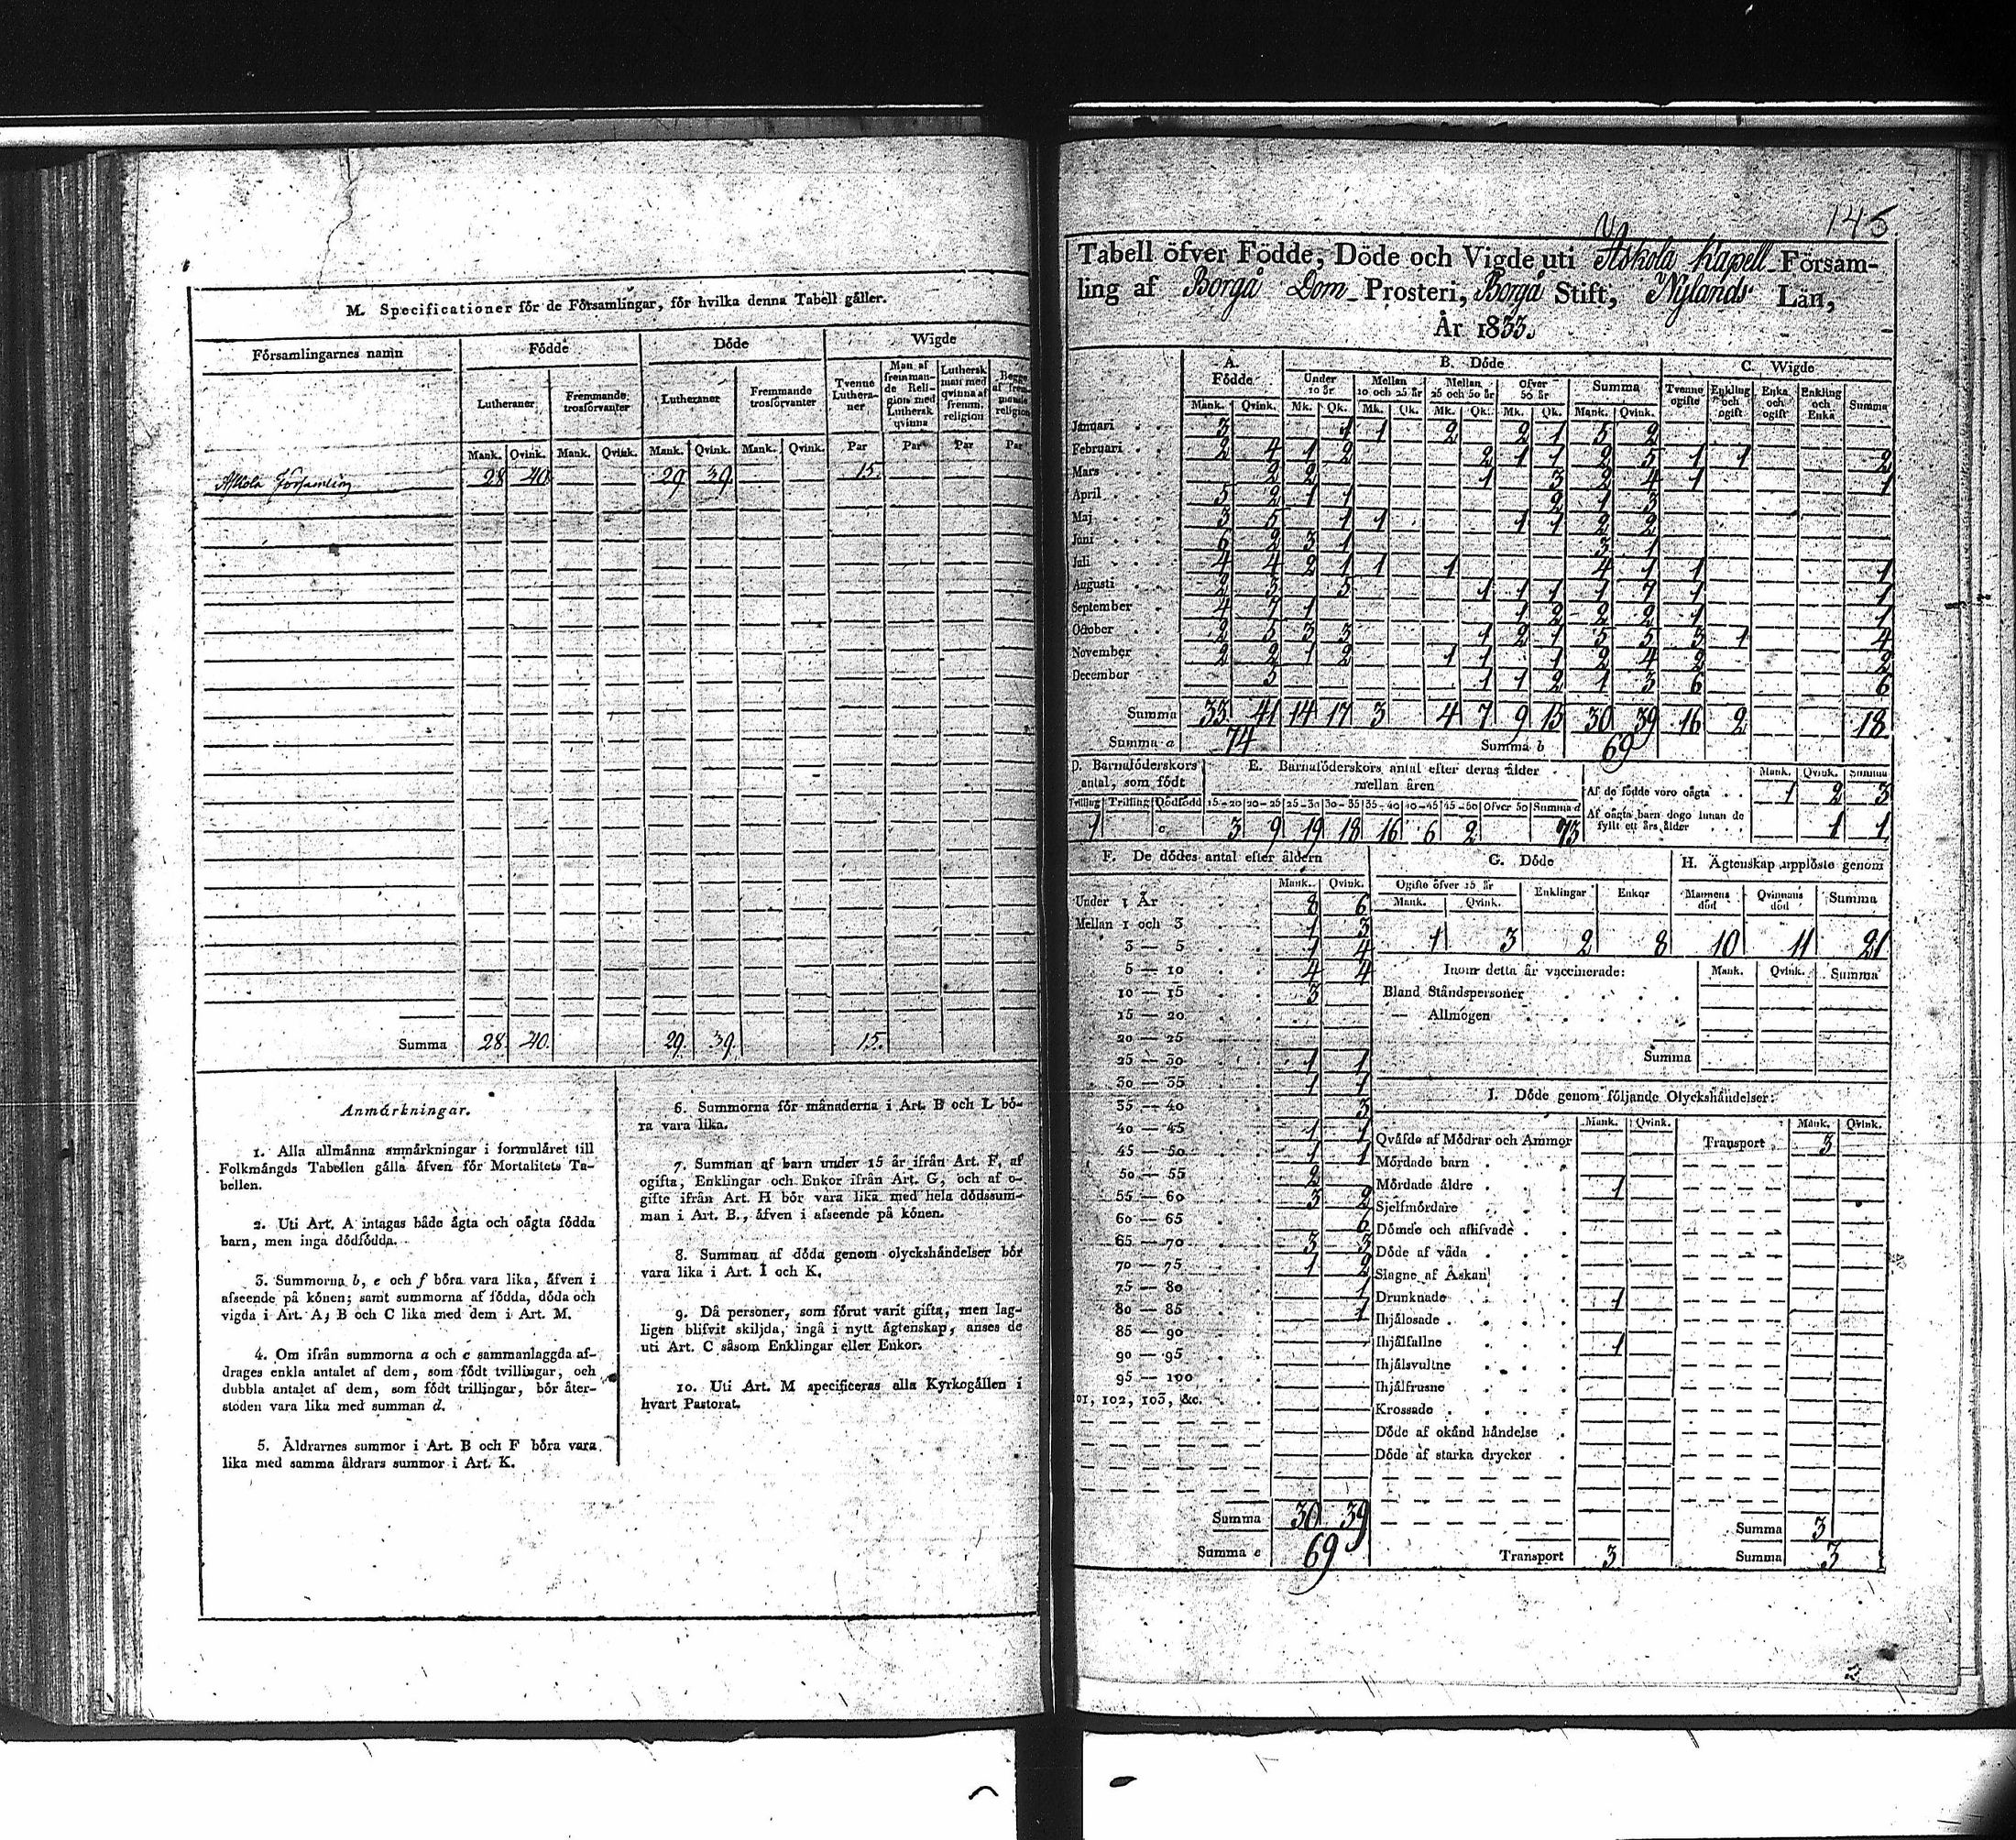 M. Specificationer för de Församlingar, för hvilka denna Tabell gäller.
Församlingarnes namn Födde Döde Wigde
Lutheraner Fremmande trosförvanter Lutheraner Fremmande trosförvanter Tvenne Lutheraner Man af fremmande Religion med Luthersk qvinna Luthersk man med qvinna af fremm. religion Begge af fremmande religion
Mank. Qvink. Mank. Qvink. Mank. Qvink. Mank. Qvink. Par Par Par Par
Askola Församling 28 40. 29 39. 15.
Summa 28. 40. 29. 39. 15.
Anmärkningar.
1. Alla allmänna anmärkningar i formuläret till
Folkmängds Tabellen gälla äfven för Mortalitets Ta-
bellen.
2. Uti Art. A intagas både ägta och oägta födda
barn, men inga dödfödda.
3. Summorna b, e och f böra vara lika, äfven i
afseende på könen; samt summorna af födda, döda och
vigda i Art. A, B och C lika med dem i Art. M.
4. Om ifrån summorna a och c sammanlaggda af-
drages enkla antalet af dem, som födt tvillingar, och
dubbla antalet af dem, som födt trillingar, bör åter-
stoden vara lika med summan d.
5. Äldrarnes summor i Art. B och F böra vara
lika med samma åldrars summor i Art. K.
6. Summorna för månaderna i Art. B och L bö-
ra vara lika.
7. Summan af barn under 15 år ifrån Art. F, af
ogifta, Enklingar och Enkor ifrån Art. G, och af o-
gifte ifrån Art. H bör vara lika med hela dödssum-
man i Art. B., äfven i afseende på könen.
8. Summan af döda genom olyckshändelser bör
vara lika i Art. I och K.
9. Då personer, som förut varit gifta, men lag-
ligen blifvit skiljda, ingå i nytt ägtenskap, anses de
uti Art. C såsom Enklingar eller Enkor.
10. Uti Art. M specificeras alla Kyrkogällen i
hvart Pastorat.
145
Tabell öfver Födde, Döde och Vigde uti Askola Kapell Försam-
ling af Borgå Dom Prosteri, Borgå Stift, Nylands Län,
År 1833.
A. Födde B. Döde C. Wigde
Under 10 år Mellan 10 och 25 år Mellan 25 och 50 år Öfver 50 år Summa Tvenne ogifte Enkling och ogift Enka och ogift Enkling och Enka Summa
Mank. Qvink. Mk. Qk. Mk. Qk. Mk. Qk. Mk. Qk. Mank. Qvink.
Januari 3 1 1 2 2 1 5 2
Februari 2 4 1 2 2 1 1 2 5 1 1 2
Mars 2 2 1 3 2 4 1 1
April 5 2 1 1 2 1 3
Maj 3 5 1 1 1 1 2 2
Juni 6 2 3 1 3 1
Juli 4 4 2 1 1 1 4 1 1 1
Augusti 2 5 1 1 1 1 7 1
September 4 7 1 1 2 2 2 1 1
October 2 3 3 1 2 1 5 5 3 1 4
November 2 2 1 2 1 1 1 2 4 2 2
December 1 1 2 1 3 6 6
Summa 33 41 14 17 3 4 7 9 15 30 39 16 2 18
Summa a 74 Summa b 69
D. Barnaföderskors antal, som födt
Tvilling Trilling Dödfödd
1 c
E. Barnaföderskors antal efter deras ålder mellan åren
15-20 20-25 25-30 30-35 35-40 40-45 45-50 Öfver 50 Summa d
3 9 19 18 16 6 2 73
Mank. Qvink. Summa
Af de födde voro oägta 1 2 3
Af oägta barn dogo innan de fyllt ett års ålder 1 1
F. De dödes antal efter åldern
Mank. Qvink.
Under 1 År 8 6
Mellan 1 och 3 1 3
3 — 5 1 4
5 — 10 4 4
10 — 15 3
15 — 20
20 — 25
25 — 30 1 1
30 — 35 1 1
35 — 40 3
40 — 45 1 1
45 — 50 1 1
50 — 55 2
55 — 60 3 2
60 — 65 6
65 — 70 3 3
70 — 75 1 2
75 — 80 1
80 — 85 1
85 — 90
90 — 95
95 — 100
101, 102, 103, &c.
Summa 30 39
Summa e 69
G. Döde
Ogifte öfver 15 år Enklingar Enkor
Mank. Qvink.
1 3 2 8
H. Ägtenskap upplöste genom
Mannens död Qvinnans död Summa
10 11 21
Inom detta år vaccinerade: Mank. Qvink. Summa
Bland Ståndspersoner
— Allmogen
Summa
I. Döde genom följande Olyckshändelser:
Mank. Qvink. Mank. Qvink.
Qväfde af Mödrar och Ammor Transport 3
Mördade barn
Mördade äldre 1
Sjelfmördare
Dömde och aflifvade
Döde af våda
Slagne af Åskan
Drunknade 1
Ihjälosade
Ihjälfallne 1
Ihjälsvultne
Ihjälfrusne
Krossade
Döde af okänd händelse
Döde af starka drycker
Summa 3
Transport 3 Summa 3